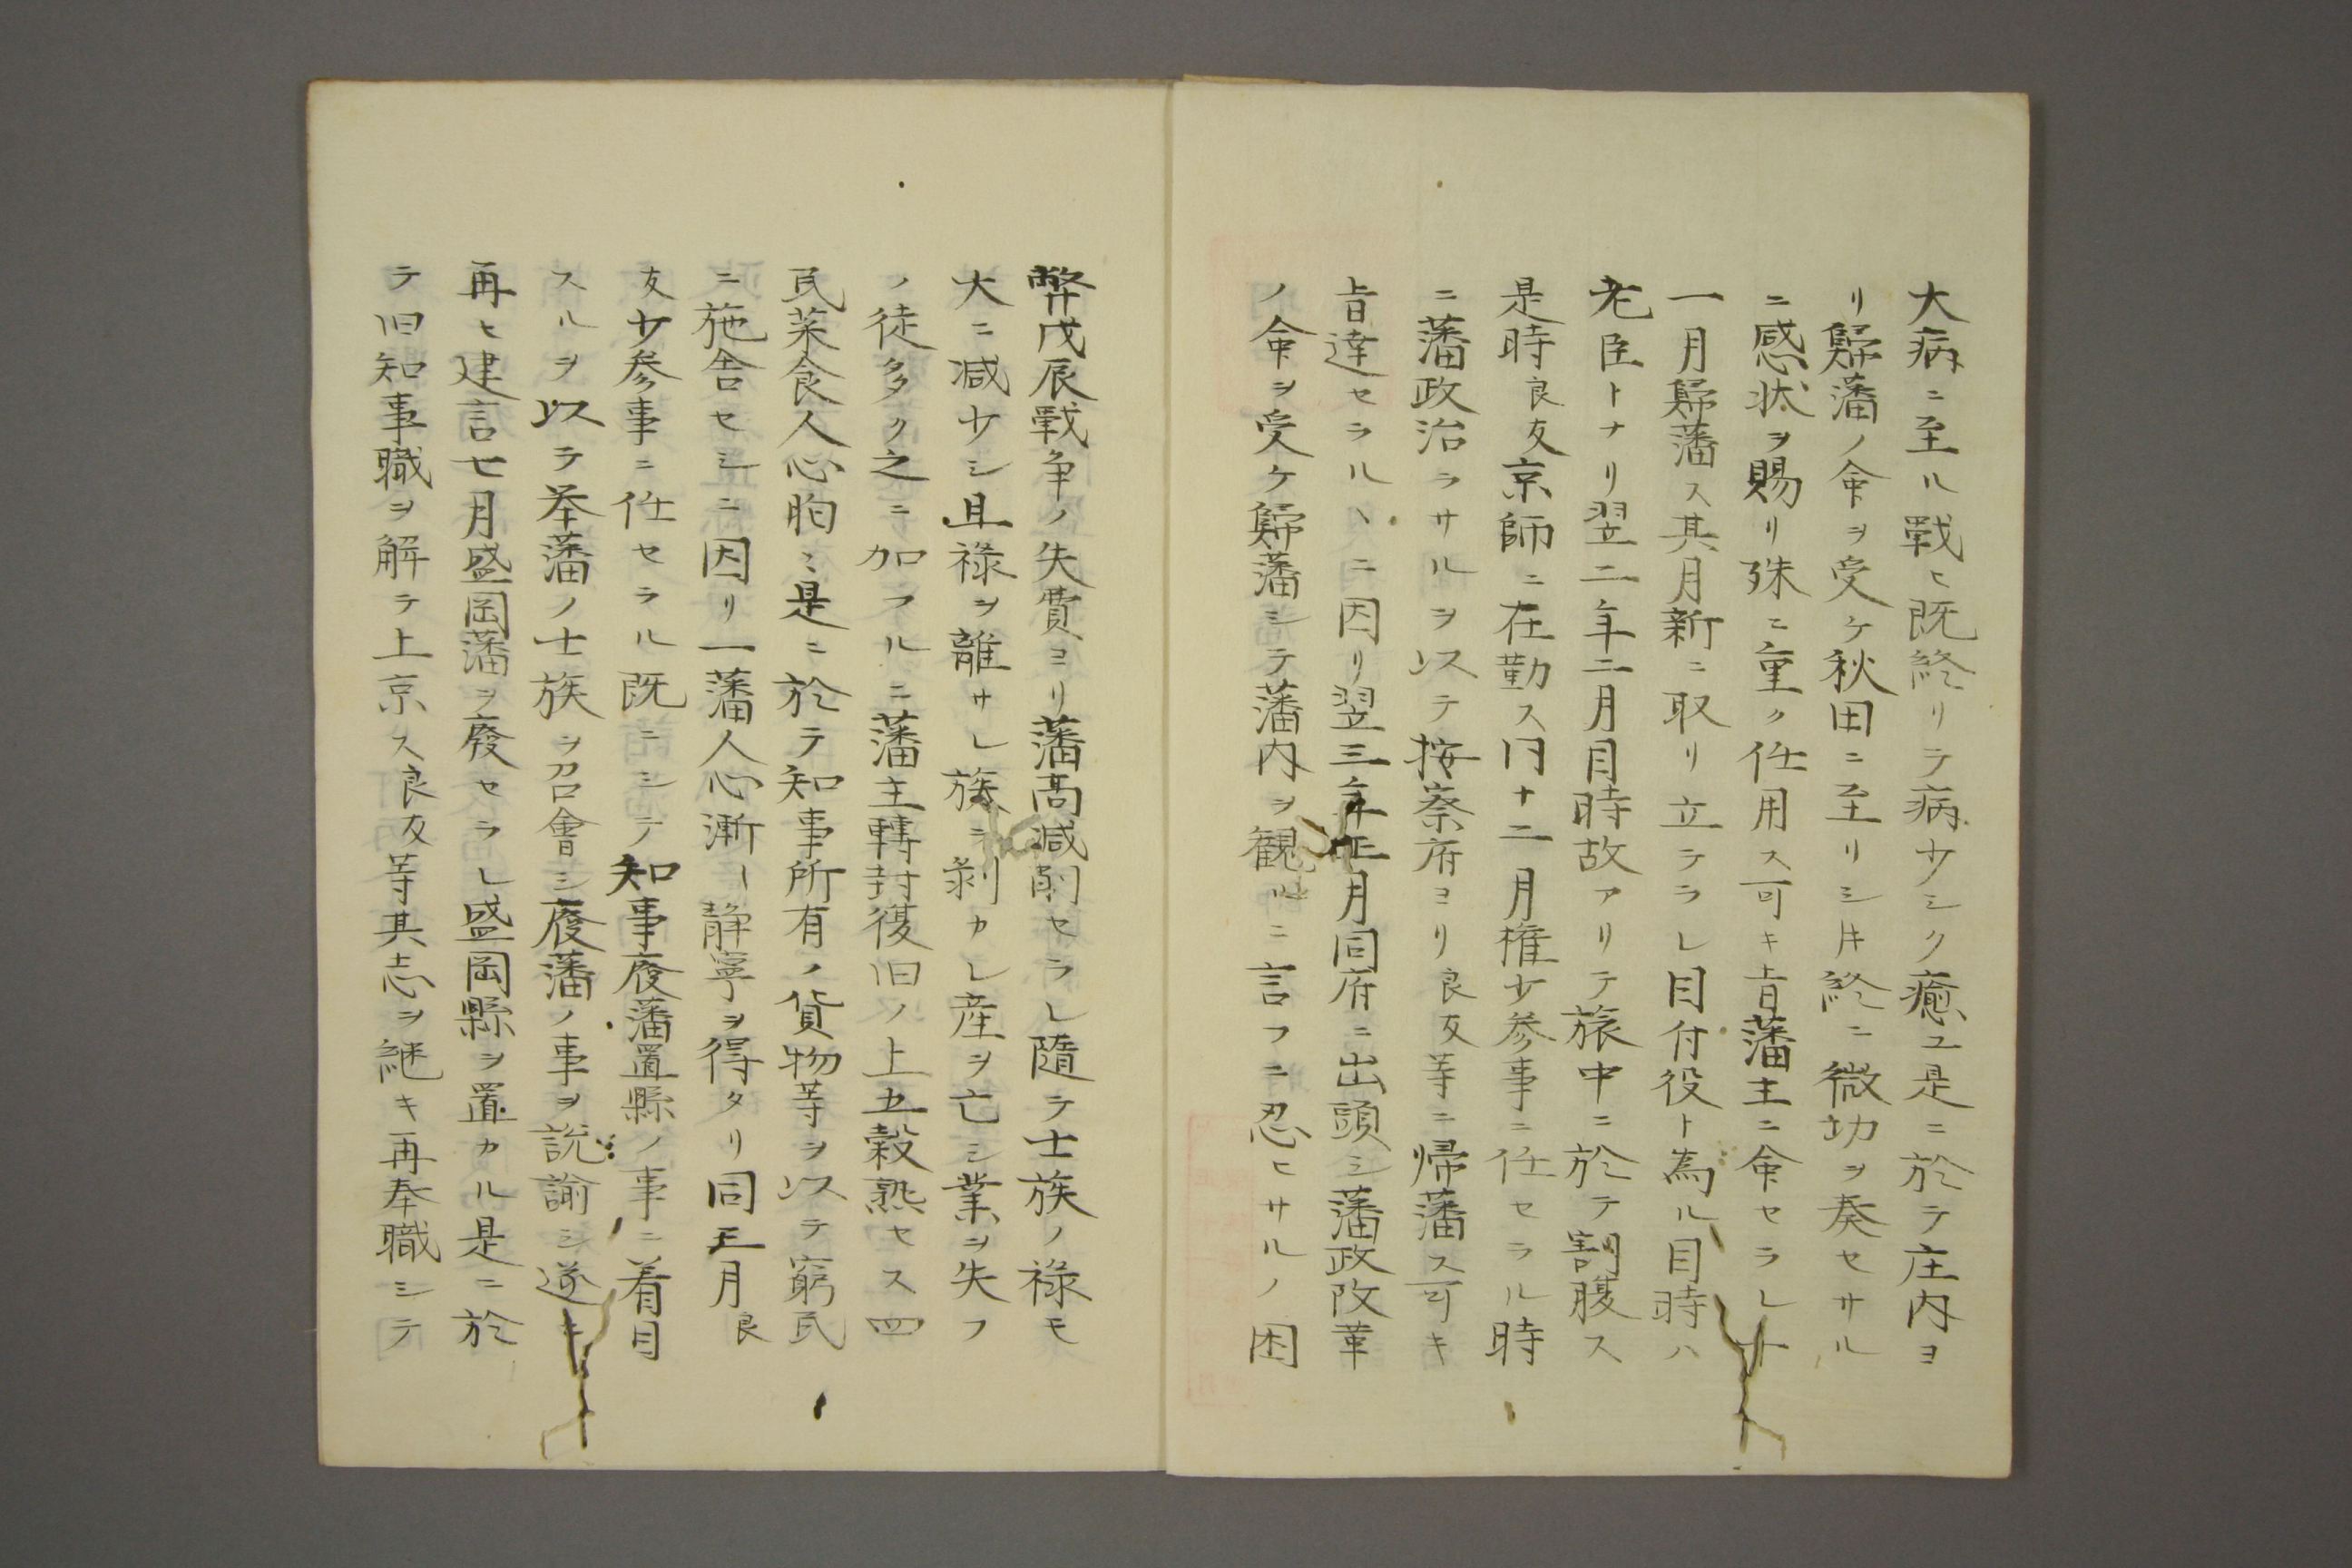 大病ニ至ル戰ヒ既終リテ病少シク癒ユ是ニ於テ庄内ヨ
リ歸藩ノ命ヲ受ケ秋田ニ至リシ𪜈終ニ微功ヲ奏セサル
ニ感状ヲ賜リ殊ニ重ク任用ス可キ旨藩主ニ命セラレ十
一月歸藩ス其月新ニ取リ立テラレ目付役ト為ル目時ハ
老臣トナリ翌二年二月目時故アリテ旅中ニ於テ割腹ス
是時良友京師ニ在勤ス同十二月権少参事ニ任セラル時
ニ藩政治ラサルヲ以テ按察府ヨリ良友等ニ帰藩ス可キ
旨達セラルヽニ因リ翌三年正月同府ニ出頭シ藩政改革
ノ命ヲ受ケ歸藩シテ藩内ヲ観ルニ言フニ忍ヒサルノ困
弊戊辰戰争ノ失費ヨリ藩高減削セラレ隨テ士族ノ禄モ
大ニ減少シ且禄ヲ離サレ族ヲ剥カレ産ヲ亡シ業ヲ失フ
ノ徒多ク之ニ加フルニ藩主轉封復旧ノ上五穀熟セス四
民菜食人心胸〻是ニ於テ知事所有ノ貨物等ヲ以テ窮民
ニ施舎セシニ因リ一藩人心漸ー静寧ヲ得タリ同正月良
友少参事ニ任セラル既ニシテ知事廢藩置縣ノ事ニ着目
スルヲ以テ举藩ノ士族ヲ召會シ廢藩ノ事ヲ説諭シ遂キ
再ヒ建言七月盛岡藩ヲ廢セラレ盛岡縣ヲ置カル是ニ於
テ旧知事職ヲ解テ上京ス良友等其志ヲ継キ再奉職シテ